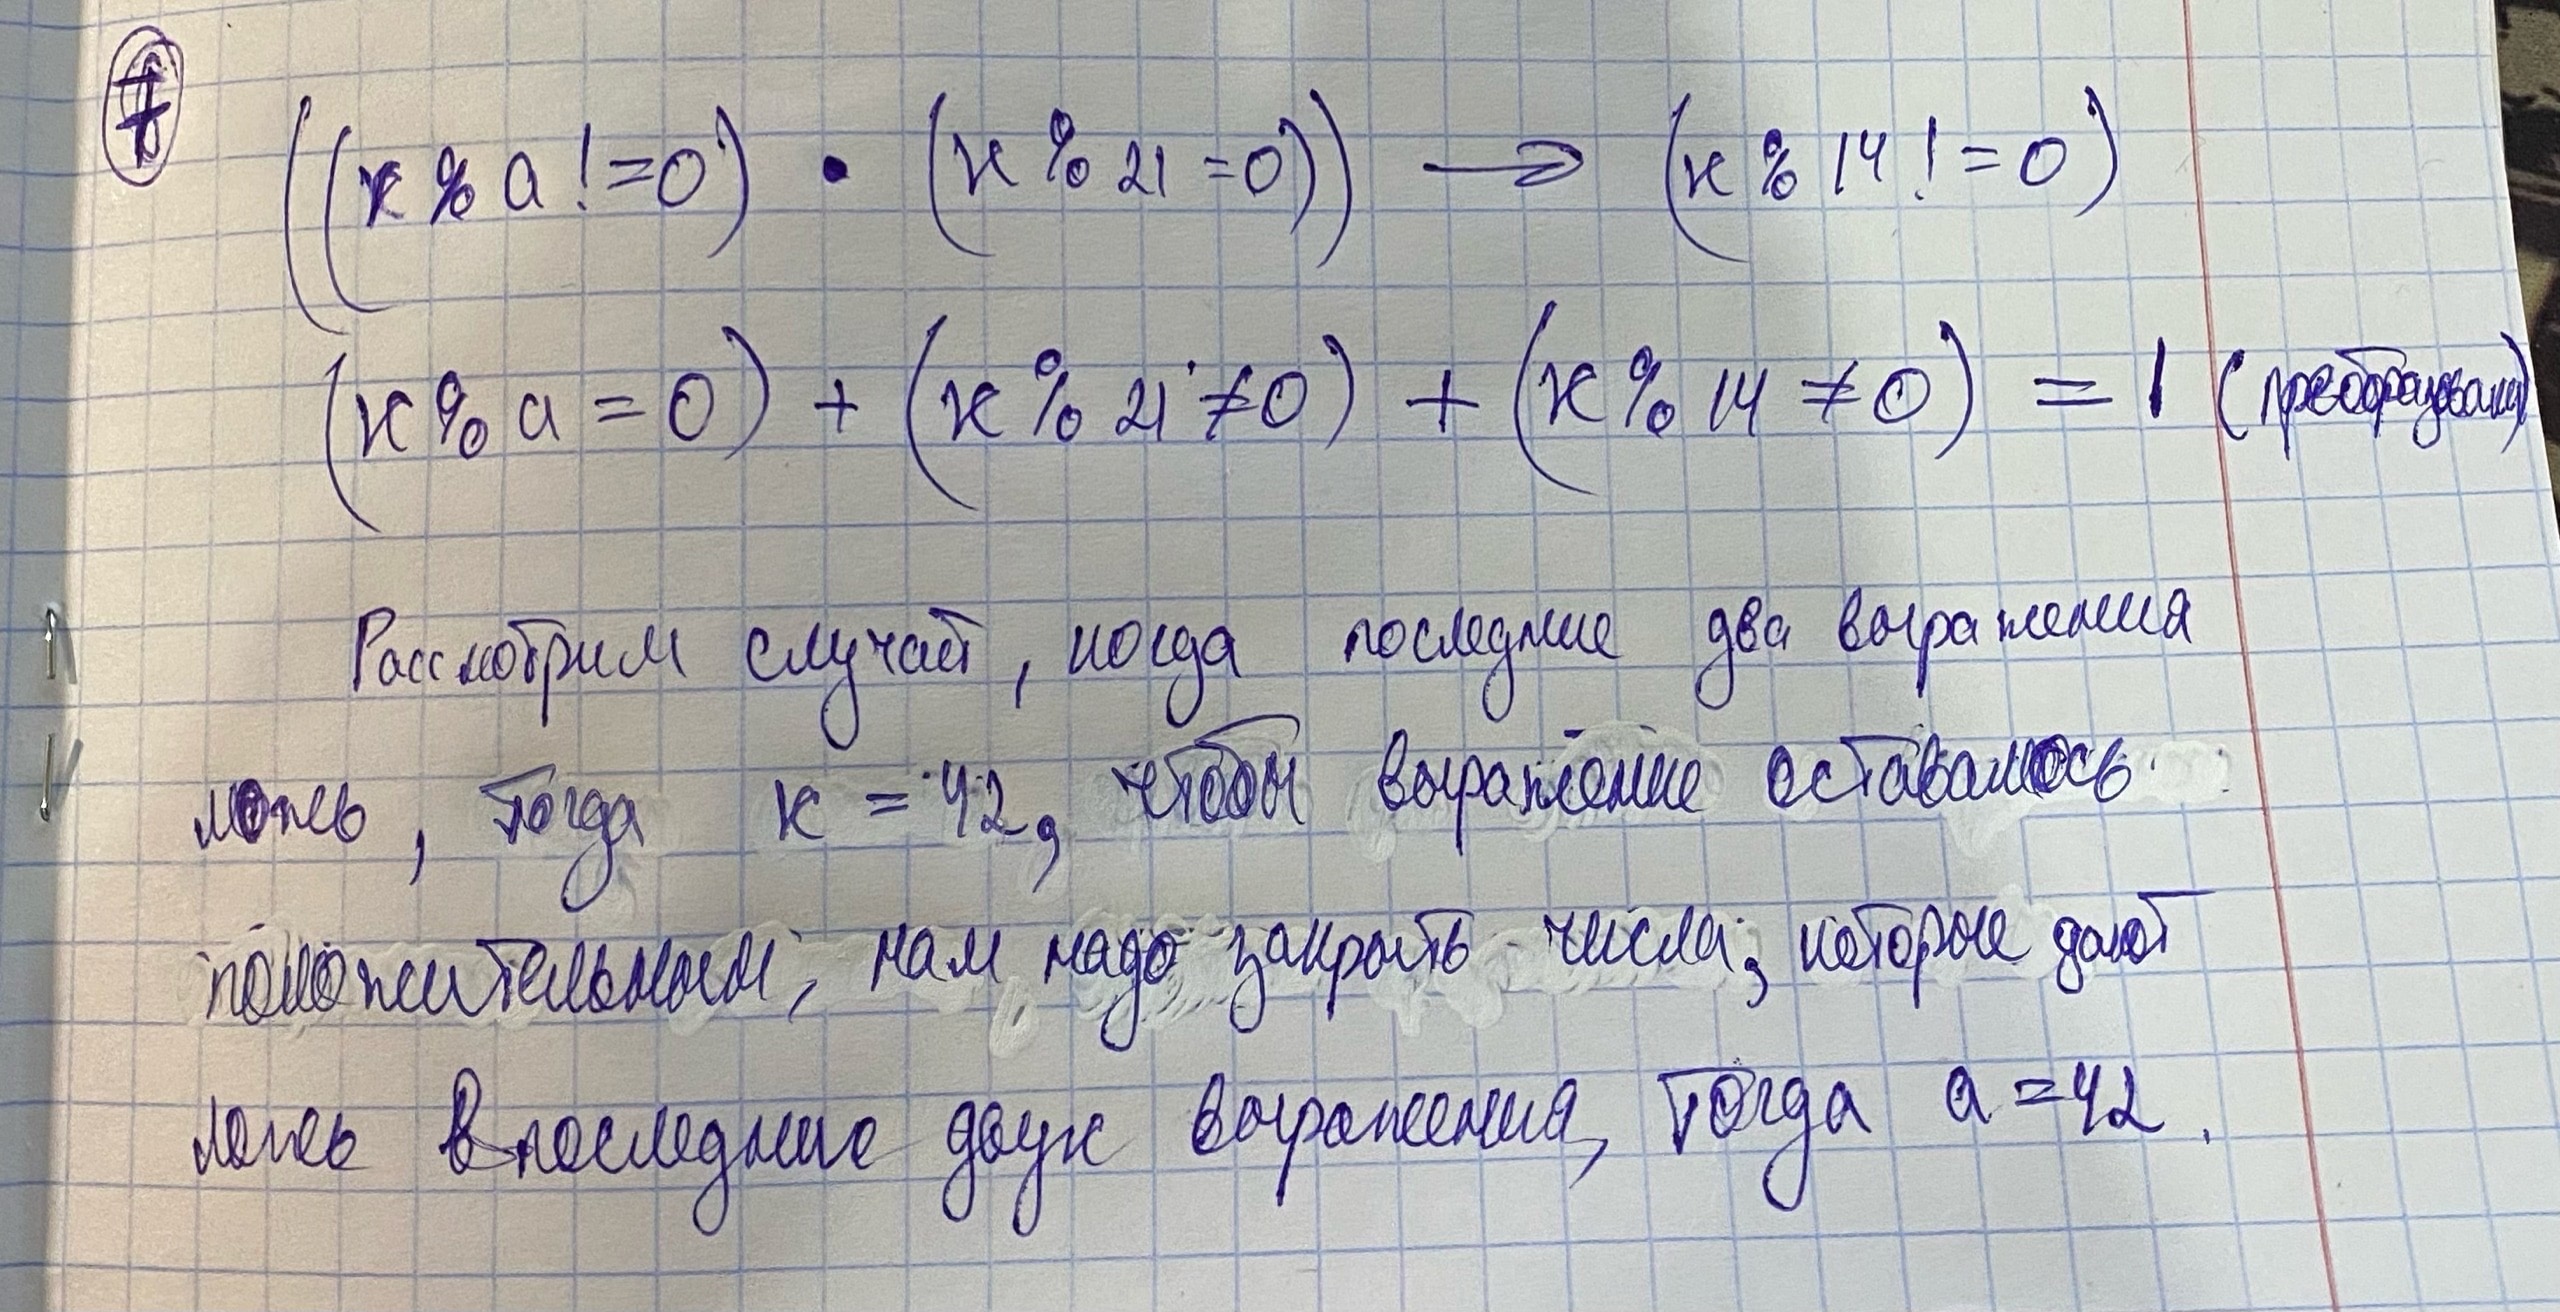 7
((x % a != 0) • (x % 21 = 0)) → (x % 14 != 0)
(x % a = 0) + (x % 21 ≠ 0) + (x % 14 ≠ 0) = 1 (преобразование)
Рассмотрим случай, когда последние два выражения
ложь, тогда x = 42, чтобы выражение оставалось
положительным, нам надо закрыть числа, которые дают
ложь в последние двух выражения, тогда a = 42.